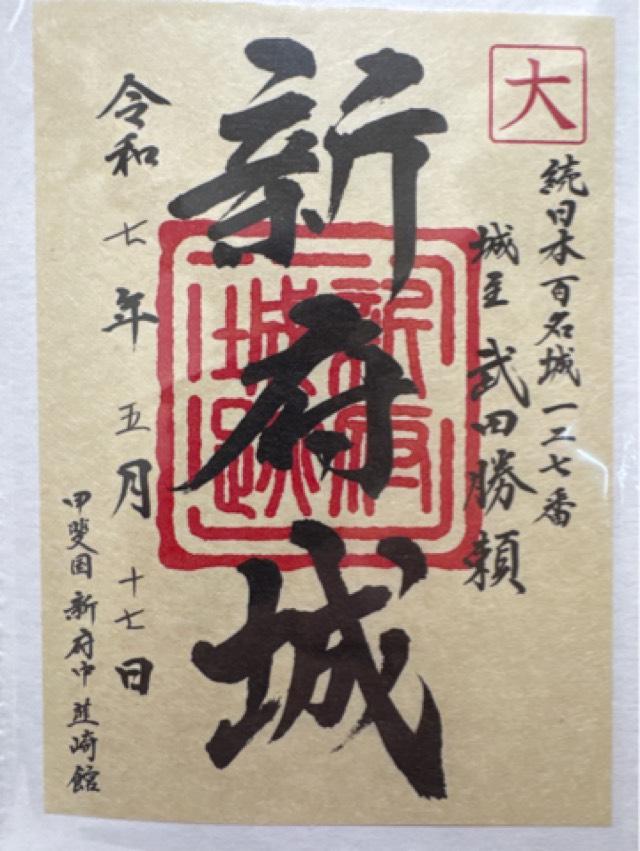 大
続日本百名城一二七番
城主 武田勝頼
新府城
新府城跡
令和七年五月十七日
甲斐国 新府中 韮崎館